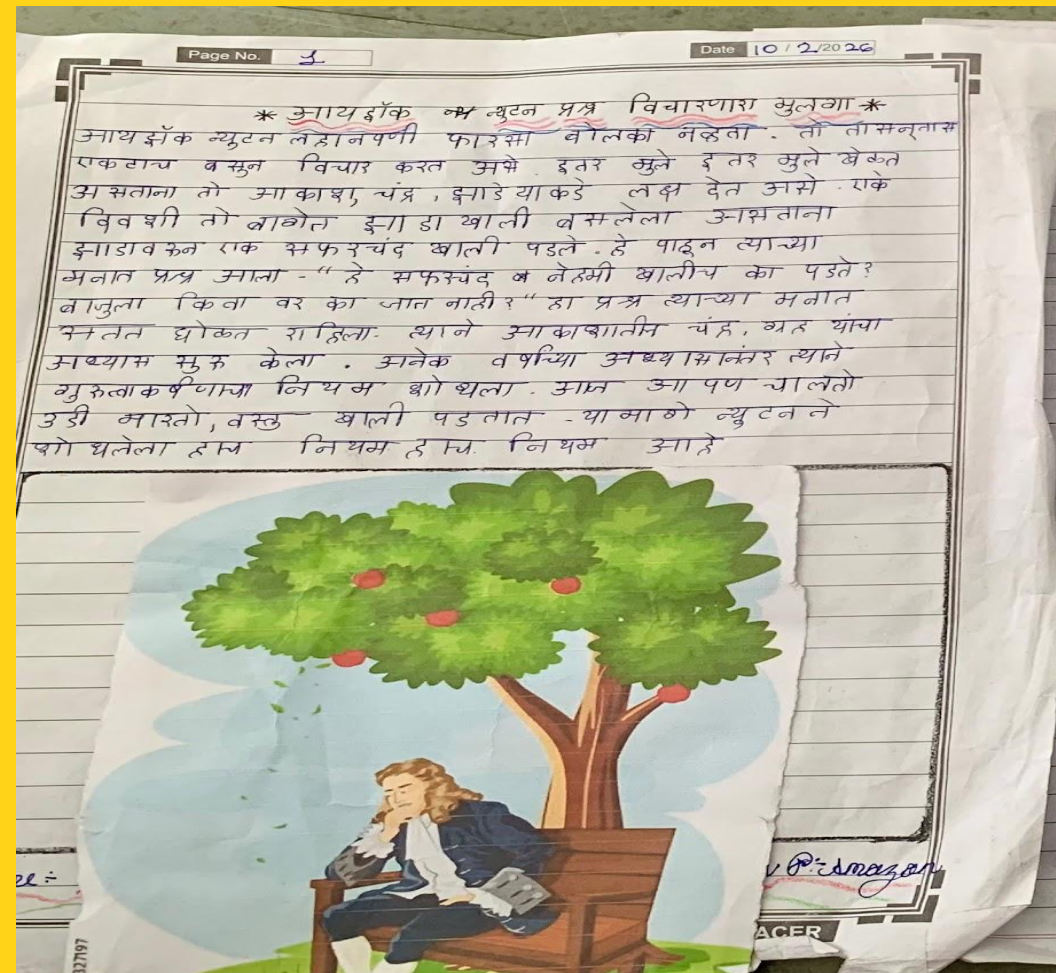 Page No. 1
Date 10/2/2026
* आयझॉक न्यूटन प्रश्न विचारणारा मुलगा *
आयझॉक न्यूटन लहानपणी फारसा बोलका नव्हता. तो तासन्‌तास
एकटाच बसून विचार करत असे. इतर मुले इतर मुले खेळत
असताना तो आकाश, चंद्र, झाडे याकडे लक्ष देत असे. एके
दिवशी तो बागेत झाडा खाली बसलेला आसताना
झाडावरून एक सफरचंद खाली पडले. हे पाहून त्याच्या
मनात प्रश्न आला - "हे सफरचंद नेहमी खालीच का पडते?
बाजुला किंवा वर का जात नाही?" हा प्रश्न त्याच्या मनात
सतत घोळत राहिला. त्याने आकाशातील चंद्र, ग्रह यांचा
अभ्यास सुरू केला. अनेक वर्षाच्या अभ्यासानंतर त्याने
गुरुत्वाकर्षणाचा नियम शोधला. आज आपण चालतो
उडी मारतो, वस्तु खाली पडतात - यामागे न्यूटनने
शोधलेला हाच नियम हाच नियम आहे
Amazon
ACER
327197